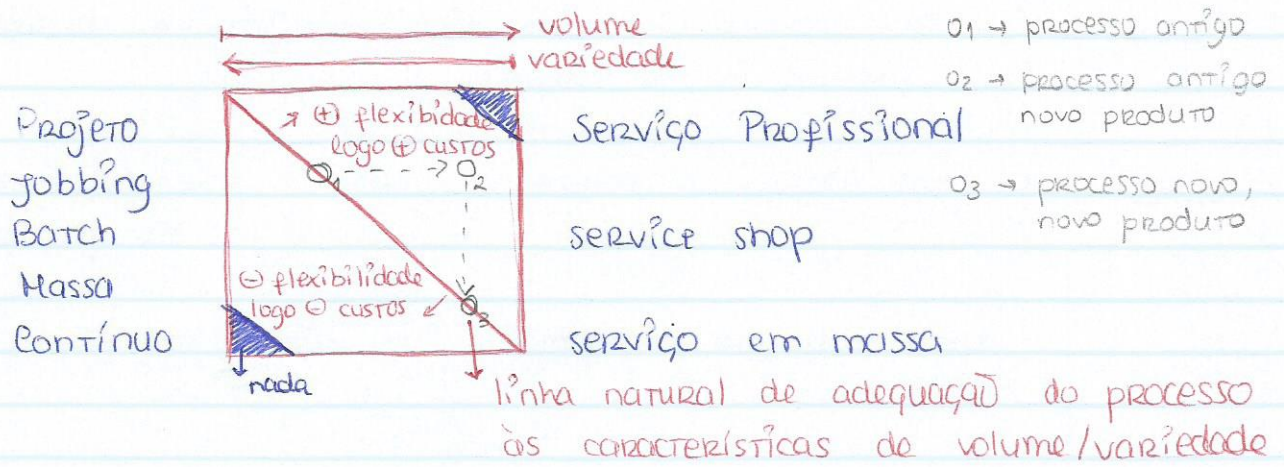 volume
variedade
O1 → processo antigo
O2 → processo antigo
novo produto
O3 → processo novo,
novo produto
Projeto
Jobbing
Batch
Massa
Contínuo
⊕ flexibidade
logo ⊕ custos
O1
O2
⊖ flexibilidade
logo ⊖ custos
O3
nada
Serviço Profissional
service shop
serviço em massa
linha natural de adequação do processo
às características de volume/variedade